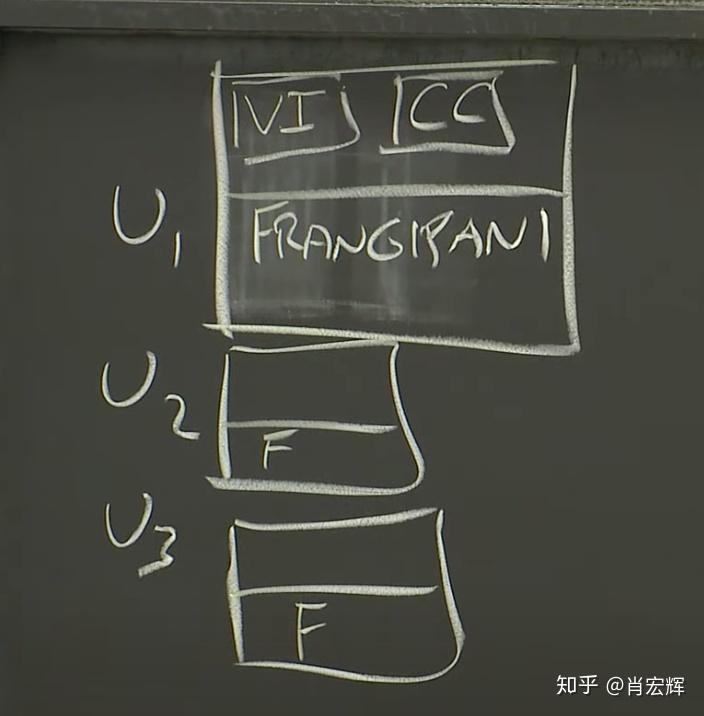 VI CC
U1
FRANGIPANI
U2
F
U3
F
知乎 @肖宏辉